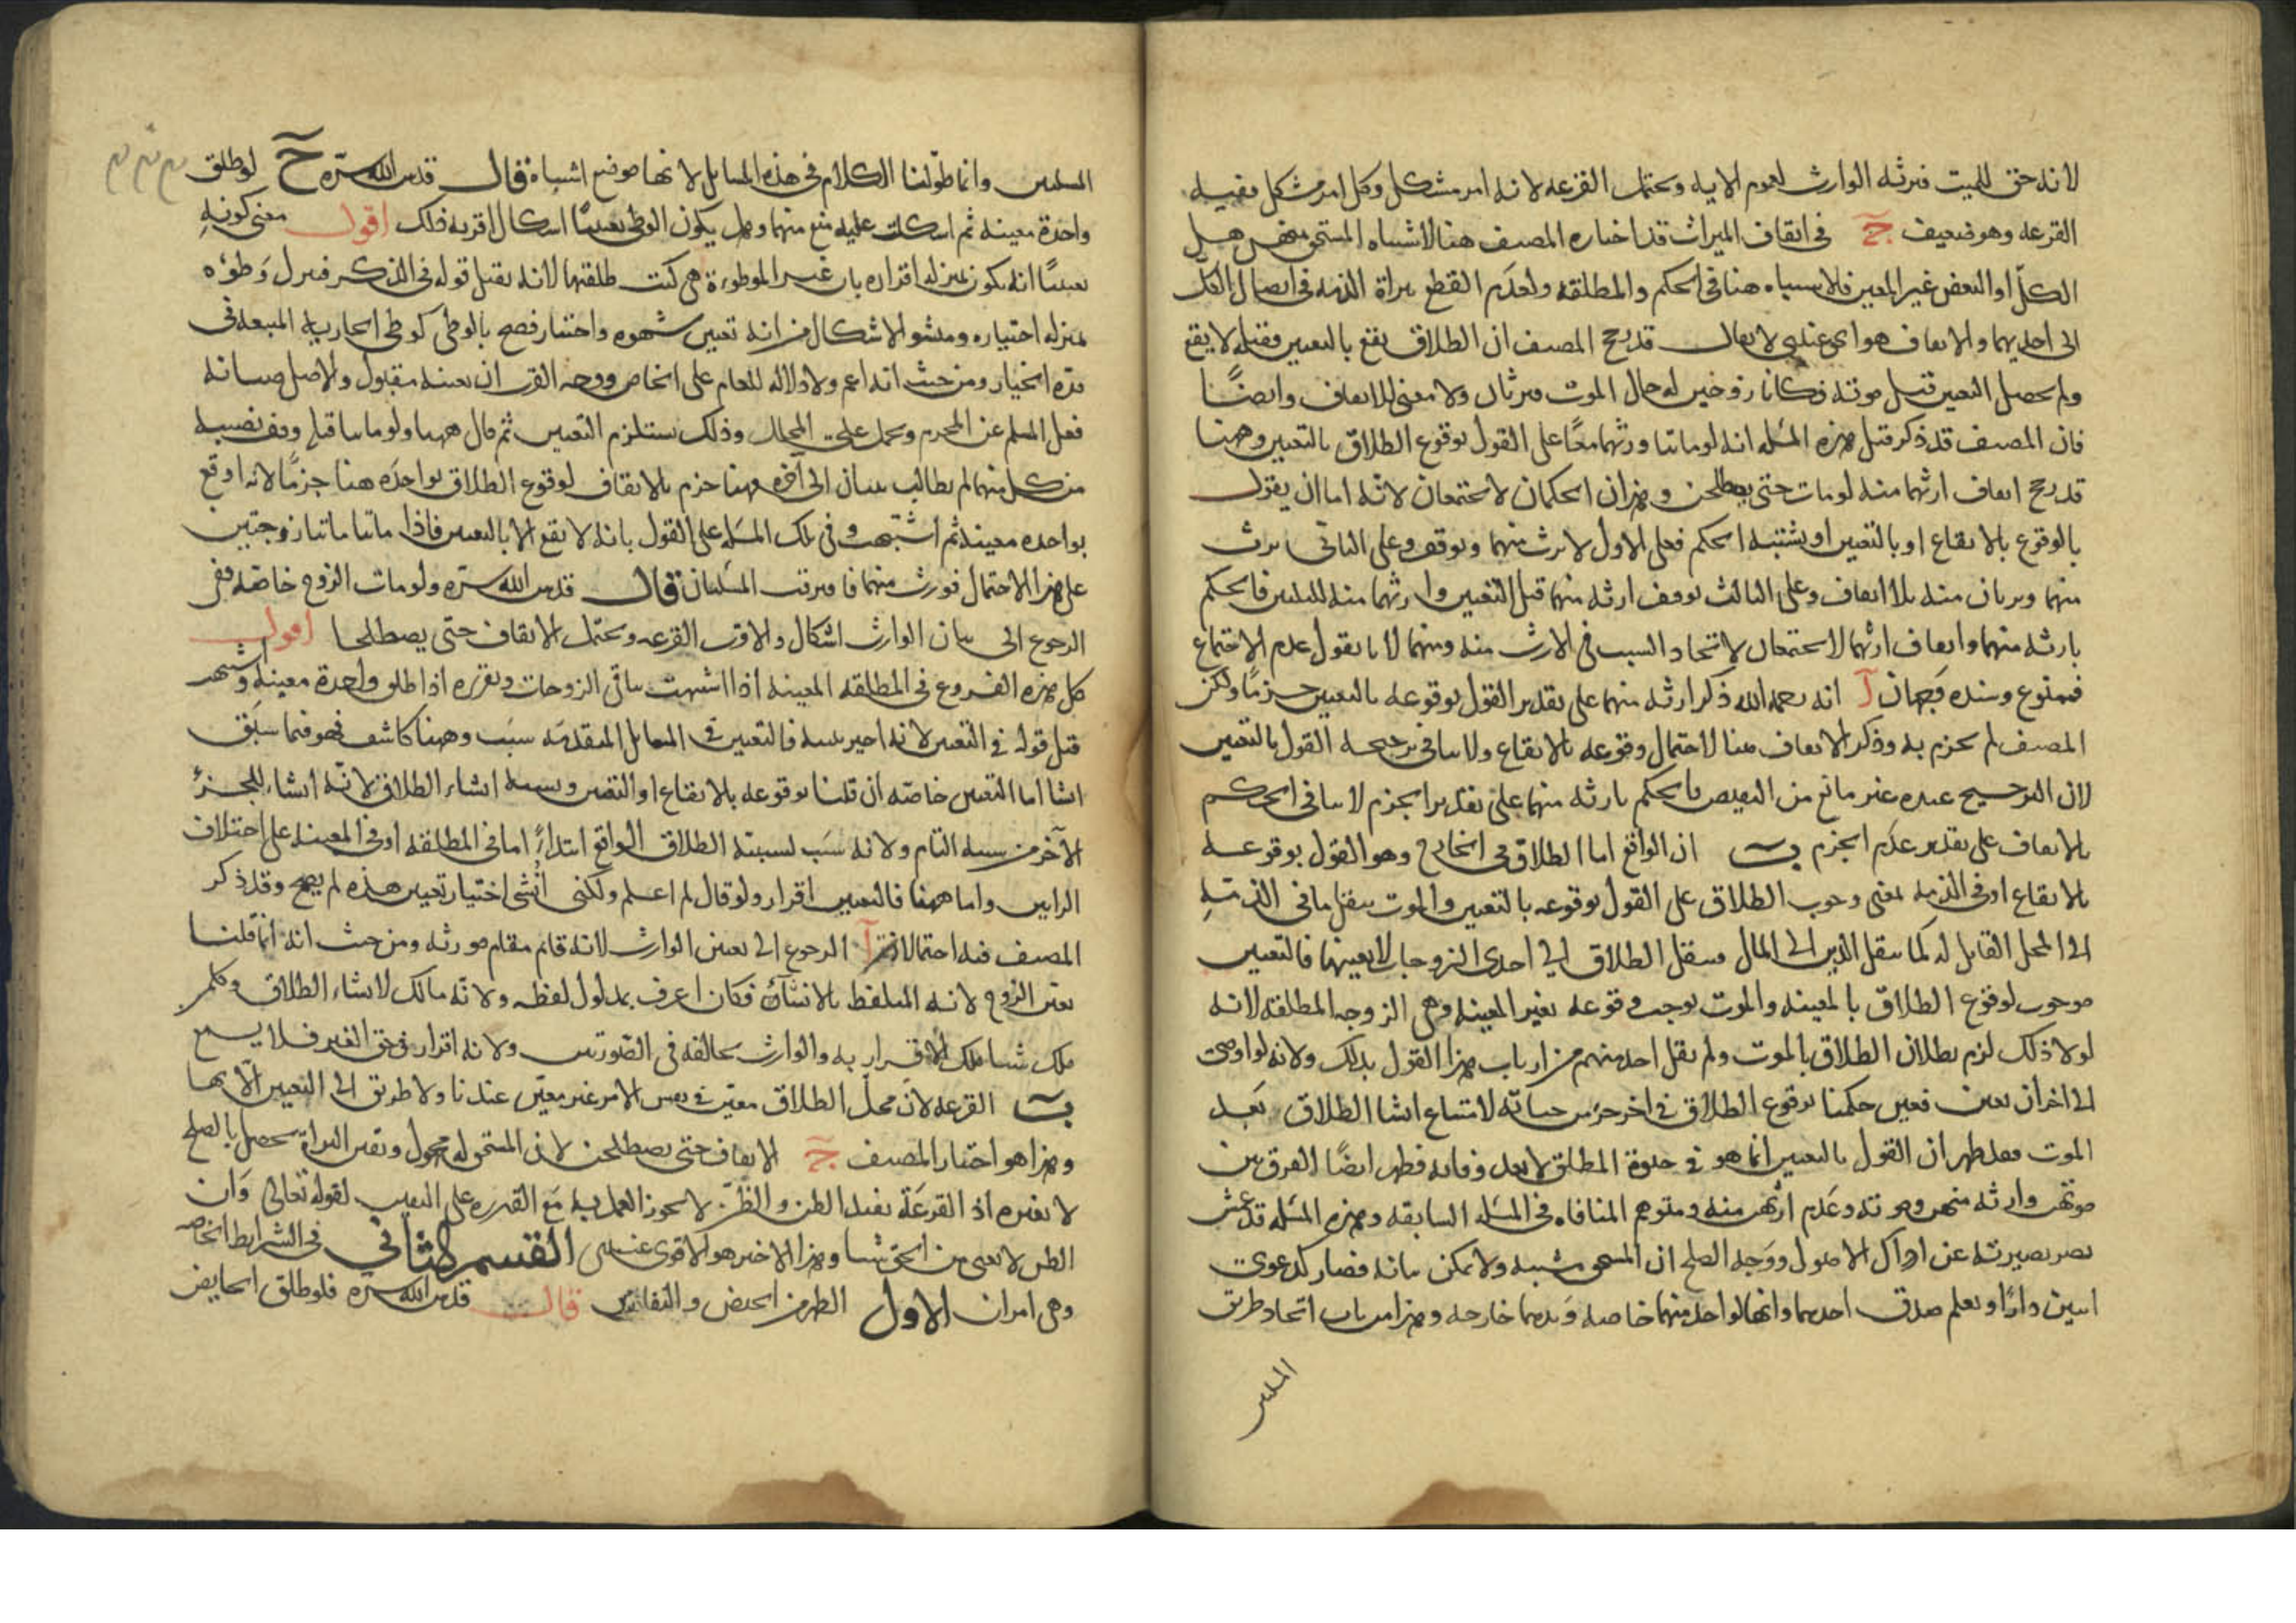 لانه حق للميت فيرثه الوارث لعموم الاية ويحتمل القرعه لانه امر مشكل وكل امر مشكل ففيه
القرعه وهو ضعيف ج في ايقاف الميراث قد اختاره المصنف هنا لاشتباه المستحق منهن هل
الكل او البعض غير المعين فلاشتباه هنا في الحكم والمطلقه ولعدم القطع ببراة الذمه في ايصال الكل
الى احديهما والايقاف هو اقوى عندي لا يقال قد رجح المصنف ان الطلاق يقع بالتعيين وقبله لا يقع
ولم يحصل التعيين قبل موته فكانا زوجين له حال الموت فيرثان ولا معنى للايقاف وايضًا
فان المصنف قد ذكر قبل هذه المسله انه لو ماتتا ورثهما معًا على القول بوقوع الطلاق بالتعيين وههنا
قد رجح ايقاف ارثهما منه لو مات حتى يصطلحن وهذان الحكمان لا يجتمعان لانه اما ان يقول
بالوقوع بالايقاع او بالتعيين او يشتبه الحكم فعلى الاول لا يرث منهما ويوقف وعلى الثاني يرث
منهما ويرثان منه بلا ايقاف وعلى الثالث يوقف ارثه منهما قبل التعيين وارثهما منه للـ فالحكم
بارثه منهما وايقاف ارثهما لا يجتمعان لاتحاد السبب في الارث منه ومنهما لانا نقول عدم الاجتماع
فممنوع وسنده وجهان آ انه رحمه الله ذكر ارثه منهما على تقدير القول بوقوعه بالتعيين جزمًا ولكن
المصنف لم يجزم به وذكر الايقاف هنا لاحتمال وقوعه بالايقاع ولا ينافي ترجيحه القول بالتعيين
لان الترجيح عنده غير مانع من النقيض فالحكم بارثه منهما على تقدير الجزم لا ينافي الحكم
بالايقاف على تقدير عدم الجزم ب ان الواقع اما الطلاق في الخارج وهو القول بوقوعه
بالايقاع او في الذمه بمعنى وجوب الطلاق على القول بوقوعه بالتعيين والموت ينقل ما في الذمّةِ
الى المحل القابل له كما ينقل الدين الى المال فينقل الطلاق الى احدى الزوجات لا بعينها فالتعيين
موجب لوقوع الطلاق بالمعينه والموت يوجب وقوعه بغير المعينه وهي الزوجه المطلقه لانه
لولا ذلك لزم بطلان الطلاق بالموت ولم يقل احد منهم من ارباب هذا القول بذلك ولانه لو اوصى
الى اخر ان يعين فعين حكمنا بوقوع الطلاق في اخر جزء من حياته لامتناع انشا الطلاق بَعد
الموت فقد ظهر ان القول بالتعيين انما هو في حيوة المطلق لا بعد وفاته فظهر ايضًا الفرق بين
موتهن وارثه منهن وموته وعَدم ارثهن منه ومتوهم المنافاه في المسله السابقه وهذه المسله قد عش
بصر بصيرته عن ادراك الاصول ووَجه الصلح ان المستحق مشتبه ولا يمكن بيانه فصار كدعوى
اثنين دارًا ويعلم صدق احدهما وانها لواحد منهما خاصه وَيدهما خارجه وهذا من باب اتحاد طريق
المسلتين
المسلتين وانما طوّلنا الكلام في هذه المسايل لانها موضع اشتباه قال قدس الله سرّه ح لو طلق
واحدة معينه ثم اشكلت عليه منع منهما وهل يكون الوطي تعيينًا اشكال اقربه ذلك اقول معنى كونِهِ
تعيينًا انه يكون بمنزلة اقراره بان غير الموطوءة هي كنت طلقتها لانه يقبل قوله في الذكر فنزل وَطؤه
بمنزلة اختياره ومنشو الاشكال من انه تعيين شهوه واختيار فصح بالوطي كوطي الجارية المبيعه في
مدة الخيار ومن حيث انه اعم ولا دلالة للعام على الخاص ووجه القرب ان تعيينه مقبول والاصل صيانة
فعل المسلم عن المحرم وحمله على المحلل وذلك يستلزم التعيين ثم قال ههنا ولو ماتتا قبله وقف نصيبه
من كل منهما ثم يطالب ببيان الى اخره فهنا جزم بالايقاف لوقوع الطلاق بواحدَه هنا جزمًا لانه اوقع
بواحده معينه ثم اشتبهت وفي تلك المسله على القول بانه لا يقع الا بالتعيين فاذا ماتتا ماتتا زوجتين
على هذا الاحتمال فورث منهما فافترقت المسلتان قال قدس الله سره ولو مات الزوج خاصه ففي
الرجوع الى بيان الوارث اشكال والاقرب القرعه ويحتمل الايقاف حتى يصطلحا اقول
كل هذه الفروع في المطلقه المعينه اذا اشتبهت بباقي الزوجات وتقريره اذا طلق واحدة معينه واشتبهت
قبل قوله في التعيين لانه اخبر بنيته فالتعيين في المسايل المتقدمه سبَب وههنا كاشف فهو فيما سَبَق
انشا اما التعيين خاصّه ان قلنا بوقوعه بالايقاع او التعيين وبسببه انشاء الطلاق لانّه انشاء للجزءِ
الآخر من سببه التام ولانه سَبب لسببيّة الطلاق الواقع ابتداءً اما في المطلقه او في المعينه على اختلاف
الرايين واما ههنا فالتعيين اقرار ولو قال لم اعلم ولكني انُشي اختيار تعيين هذه لم يصح وقد ذكر
المصنف فيه احتمالات آ الرجوع الى تعيين الوارث لانه قام مقام مورثه ومن حيث انه انّما قلنا
بتعيين الزوج لانه المتلفظ بالانشاء فكان اعرف بمدلول لفظه ولانّه مالك لانشاء الطلاق وكل من
ملك شيا ملك الاقرار به والوارث يخالفه في الصّورتين ولانه اقرار في حق الغير فلا يسمع
ب القرعه لان محلّ الطلاق معيّن في نفس الامر غير معيّن عندنا ولا طريق الى التعيين الّا بها
وهذا هو اختيار المصنف ج الايقاف حتى يصطلحن لان المستحق له مجهول ويقين البراة يحصل بالصلح
لا بغيره اذ القرعَة تفيد الظن والظنّ لا يجوز العمل به مَع القدره على اليقين لقوله تعالى وَان
الظن لا يغني من الحق شيا وهذا الاخير هو الاقوى عندي القسم الثاني في الشرايط الخاصه
وهي امران الاول الطهر من الحيض والنفاس قال قدس الله سره فلو طلق الحايض